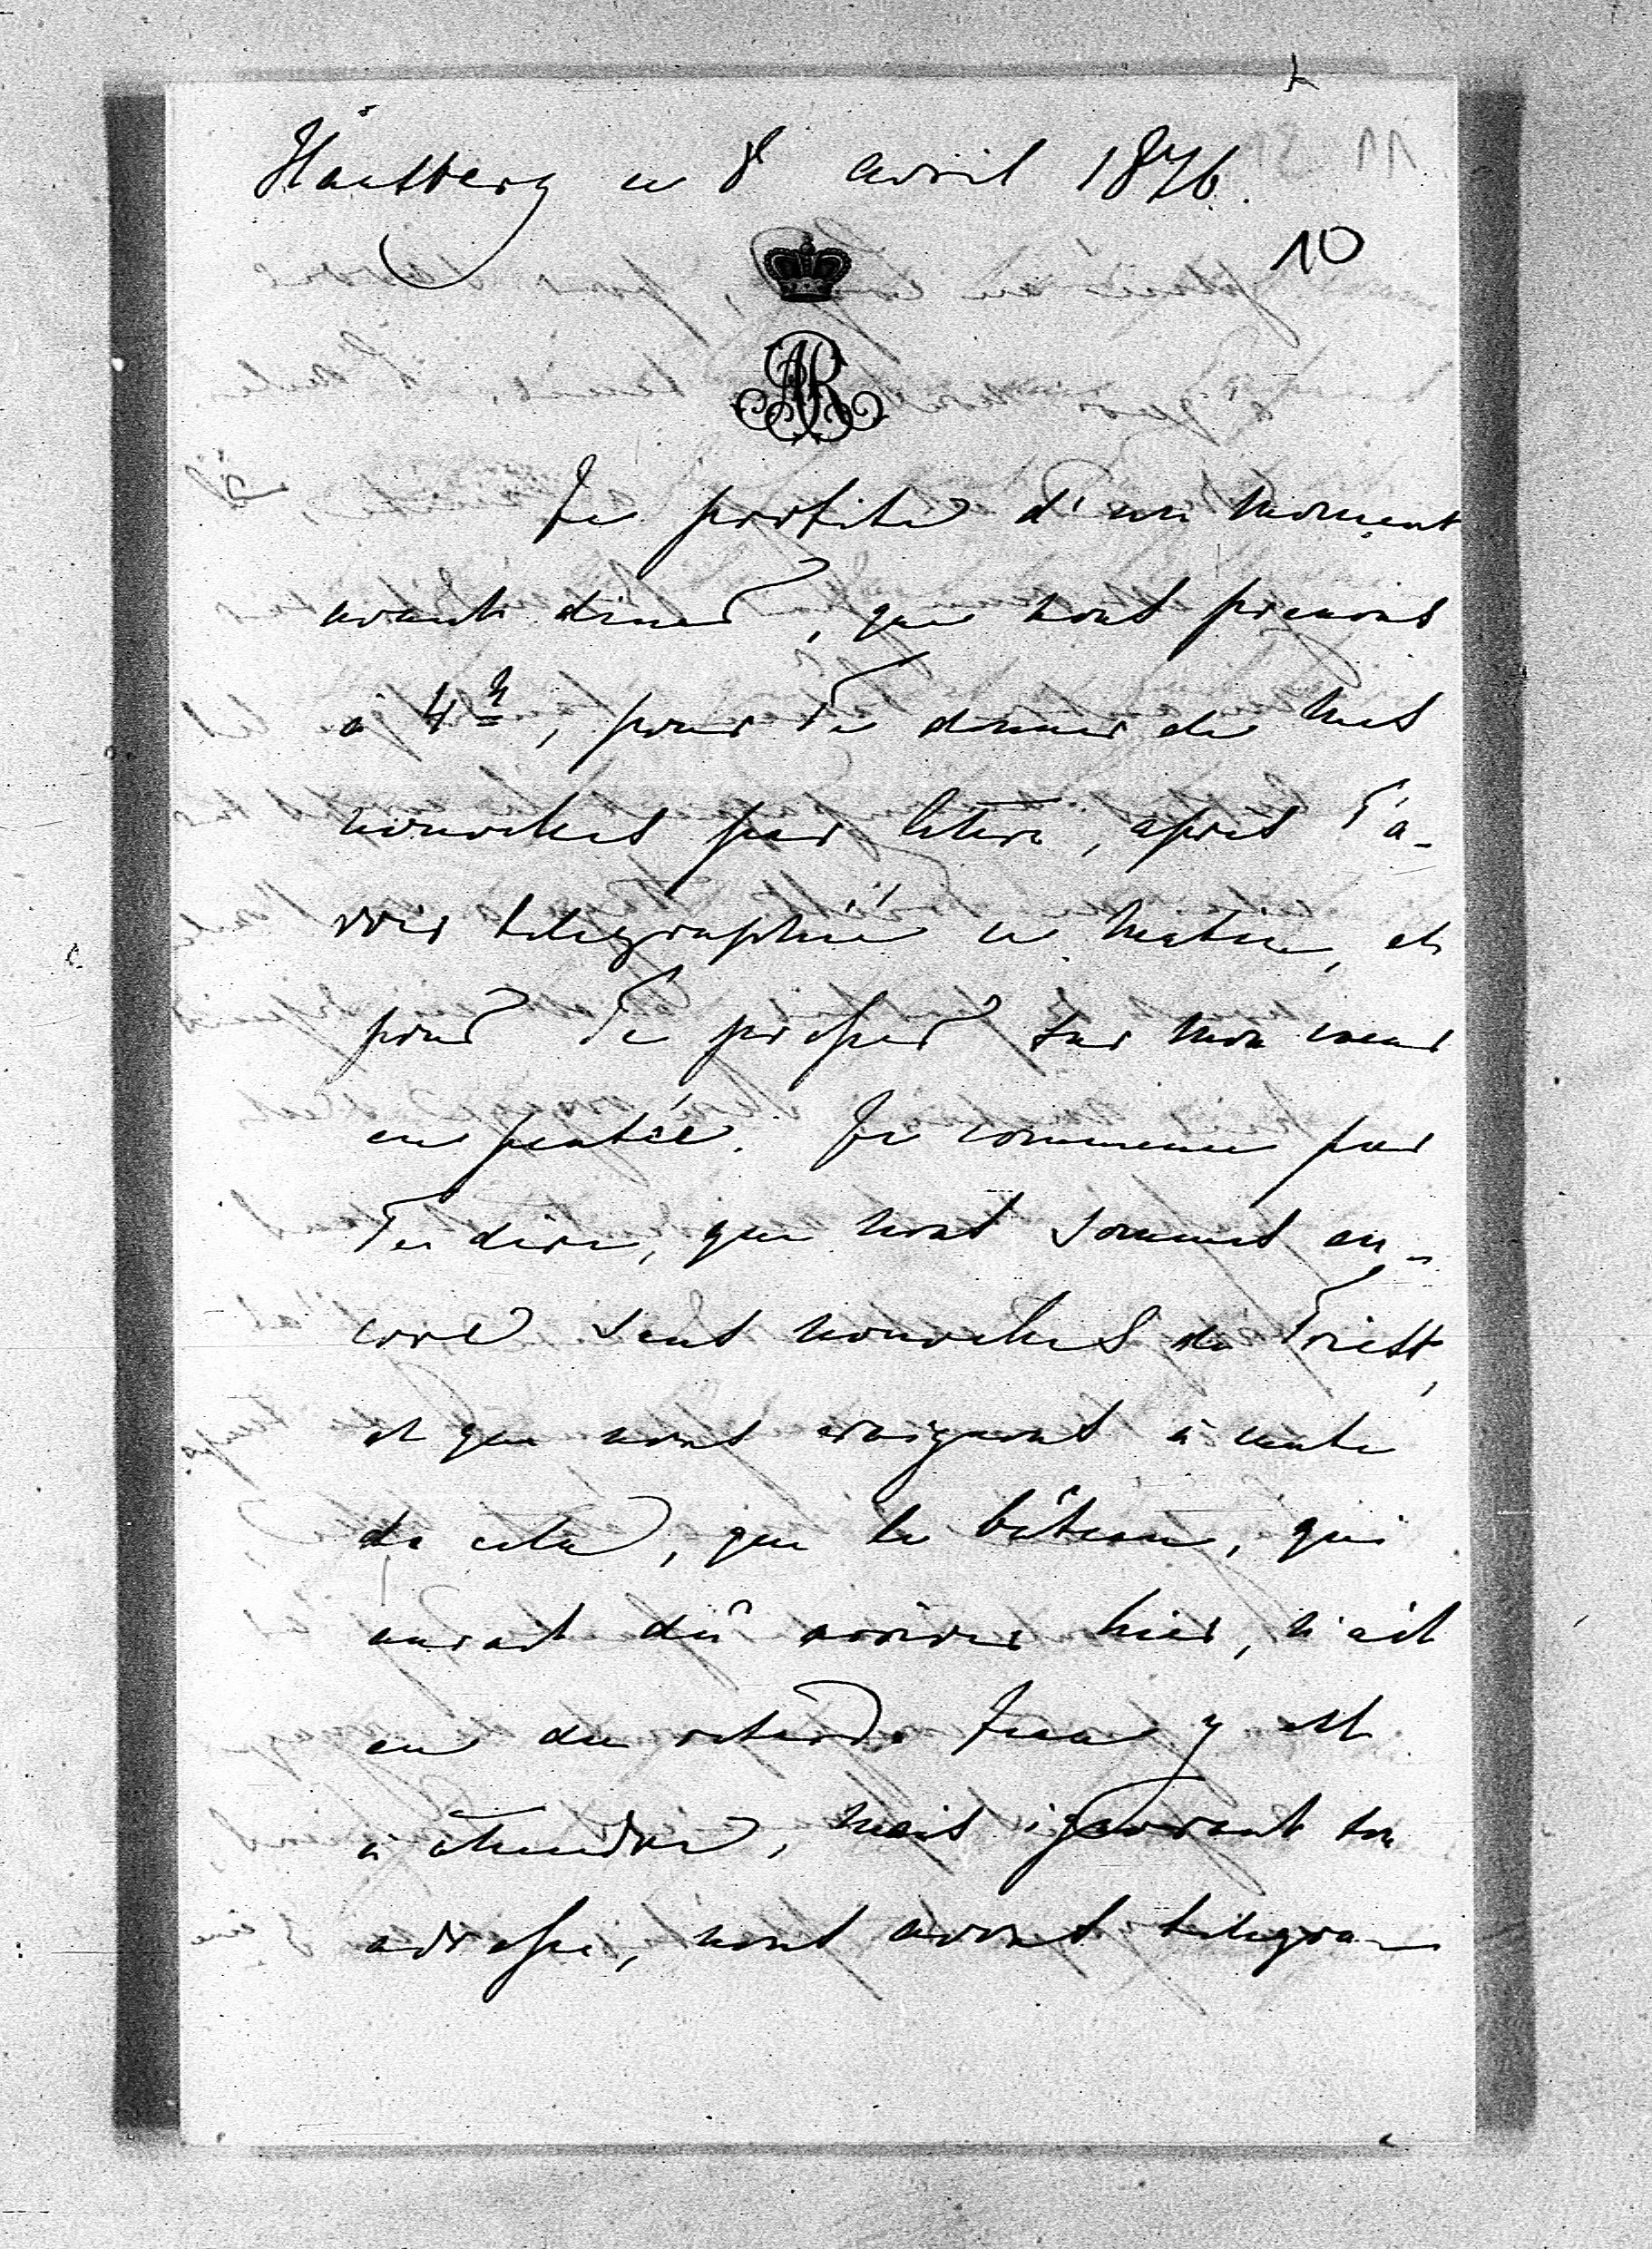 ce 8 avril 1876.
10
AR
Je profite d'un moment
avant diner, que nous prenons
à 4 h, pour Te donner de mes
nouvelles par lettre, après T'a-
voir telegraphié ce matin, et
pour Te presser sur mon coeur
en pensée. Je commence par
Te dire, que nous sommes en-
core sans nouvelles de Triest,
et que nous craignons à cause
de cela, que le bâteau, qui
aurait dû arriver hier, n'ait
eu du retard. y est
à attendre, mais ignorant son
adresse, nous avons telegra-